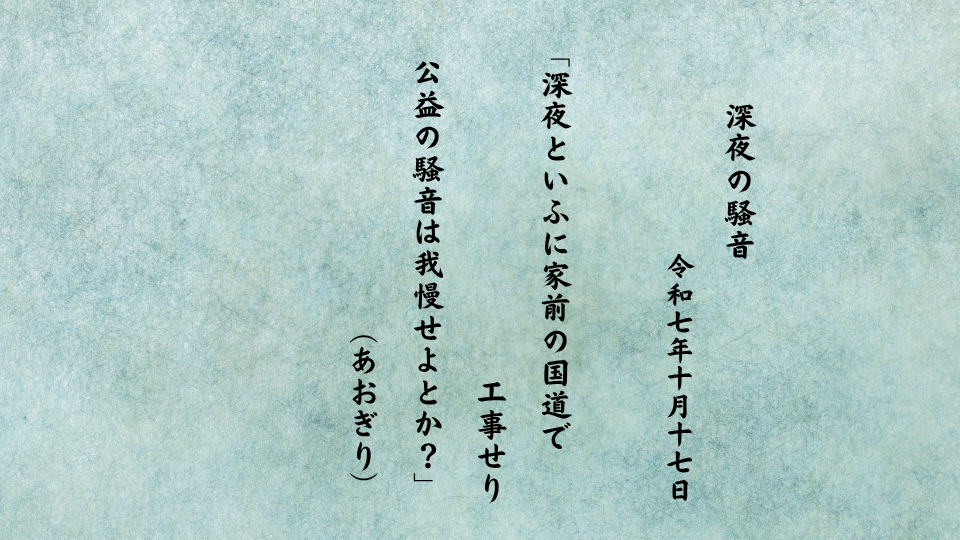 深夜の騒音
令和七年十月十七日
「深夜といふに家前の国道で
工事せり
公益の騒音は我慢せよとか？」
（あおぎり）